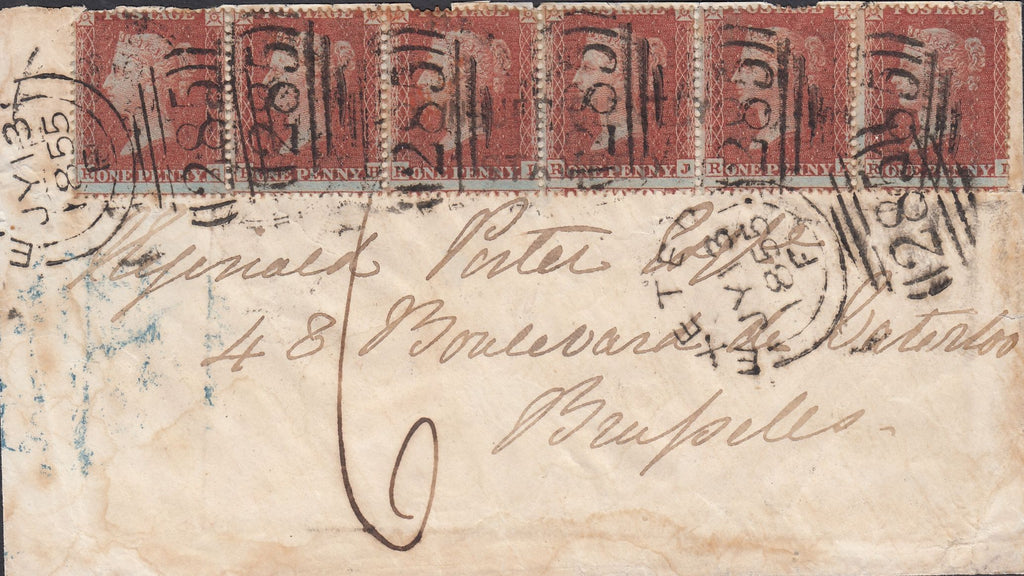 ONE PENNY ONE PENNY R ONE PENNY R ONE PENNY J R ONE PENNY R ONE PENNY
285 285 285 285 285 285
EXETER
JY 13
1855
F
EXETER
JY 13
1855
F
Reginald Porter Esqre
48 Boulevard de Waterloo
Bruxelles
6